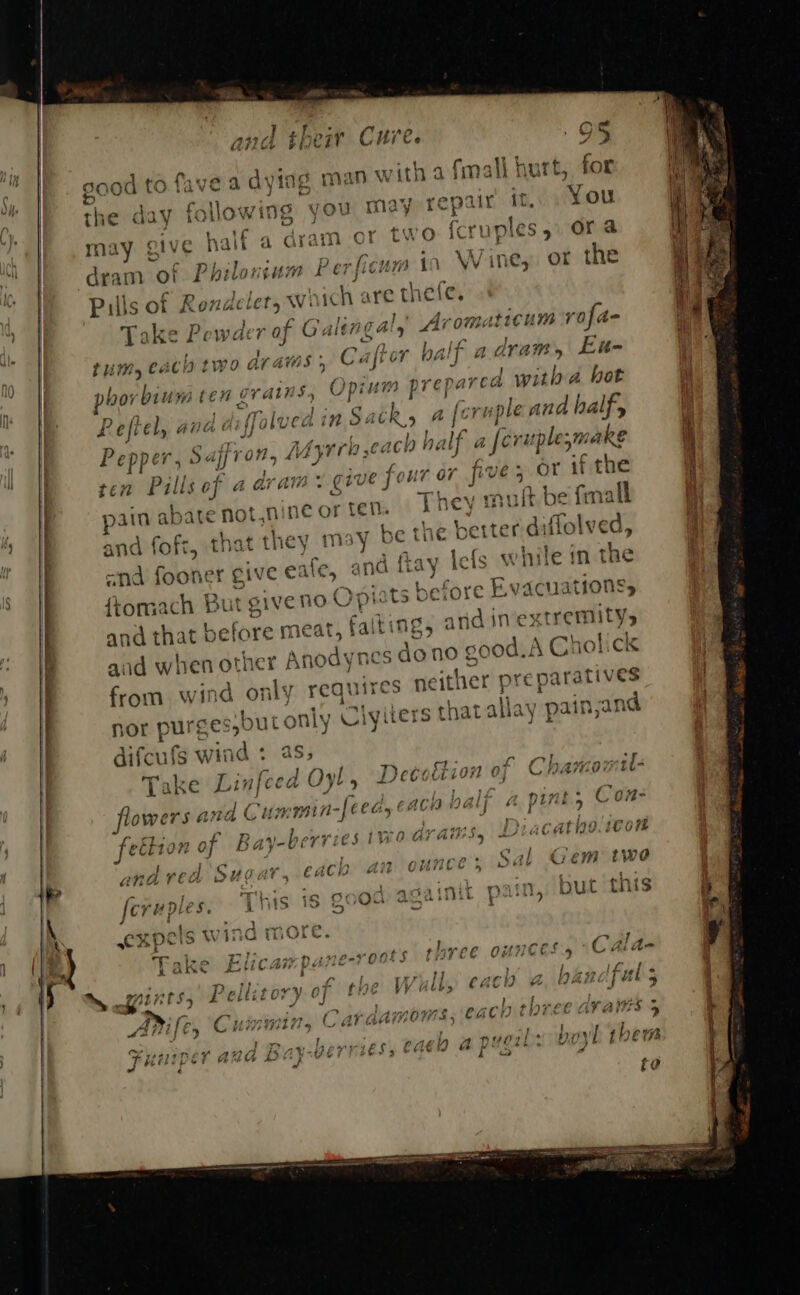 and their Cure. 95
good to ſave a dying man with a ſmall hurt, for
the day following you may repair it. You
may give half a dram or two ſcruples, or a
dram of Philonium Perſicum in Wine, or the
Pills of Rondelet, which are theſe.
Take Powder of Galingal, Aromaticum roſa-
tum, each two drams; Caſtor half a dram, Eu-
phorbium ten grains, Opium prepared with a hot
Peſtel, and diſſolved in Sack, a ſcruple and half,
Pepper, Saffron, Myrrh, each half a ſcruple; make
ten Pills of a dram: give four or five; or if the
pain abate not, nine or ten. They muſt be ſmall
and ſoft, that they may be the better diſſolved,
and ſooner give eaſe, and ſtay leſs while in the
ſtomach But give no Opiats before Evacuations,
and that before meat, faſting, and in extremity,
and when other Anodynes do no good. A Cholick
from wind only requires neither preparatives
nor purges, but only Clyſters that allay pain, and
diſcuſs wind: as,
Take Linſeed Oyl, Decoction of Chamomil-
flowers and Cummin-ſeed, each half a pint; Con-
fection of Bay-berries two drams, Diacatholicon
and red Sugar, each an ounce; Sal Gem two
ſcruples. This is good againſt pain, but this
expels wind more.
Take Elicampane-roots three ounces, Cala-
mints, Pellitory of the Wall, each a handful;
Aniſe, Cummin, Cardamoms, each three drams;
Juniper and Bay-berries, each a pugil: boyl them
to